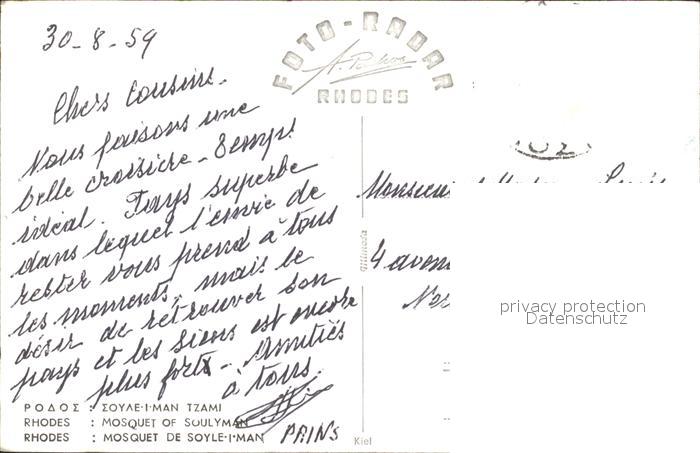 30-8-59
FOTO-RADAR
RHODES
Chers Cousins.
Nous faisons une
belle croisière - Temps
idéal. Pays superbe
dans lequel l'envie de
rester vous prend à tous
les moments, mais le
désir de retrouver son
pays et les siens est encore
plus fort - Amitiés
à tous.
PRINS
Monsieur
4 aven
privacy protection
Datenschutz
ΡΟΔΟΣ : ΣΟΥΛΕ·Ι·ΜΑΝ ΤΖΑΜΙ
RHODES : MOSQUET OF SOULYMAN
RHODES : MOSQUET DE SOYLE·I·MAN
Kiel